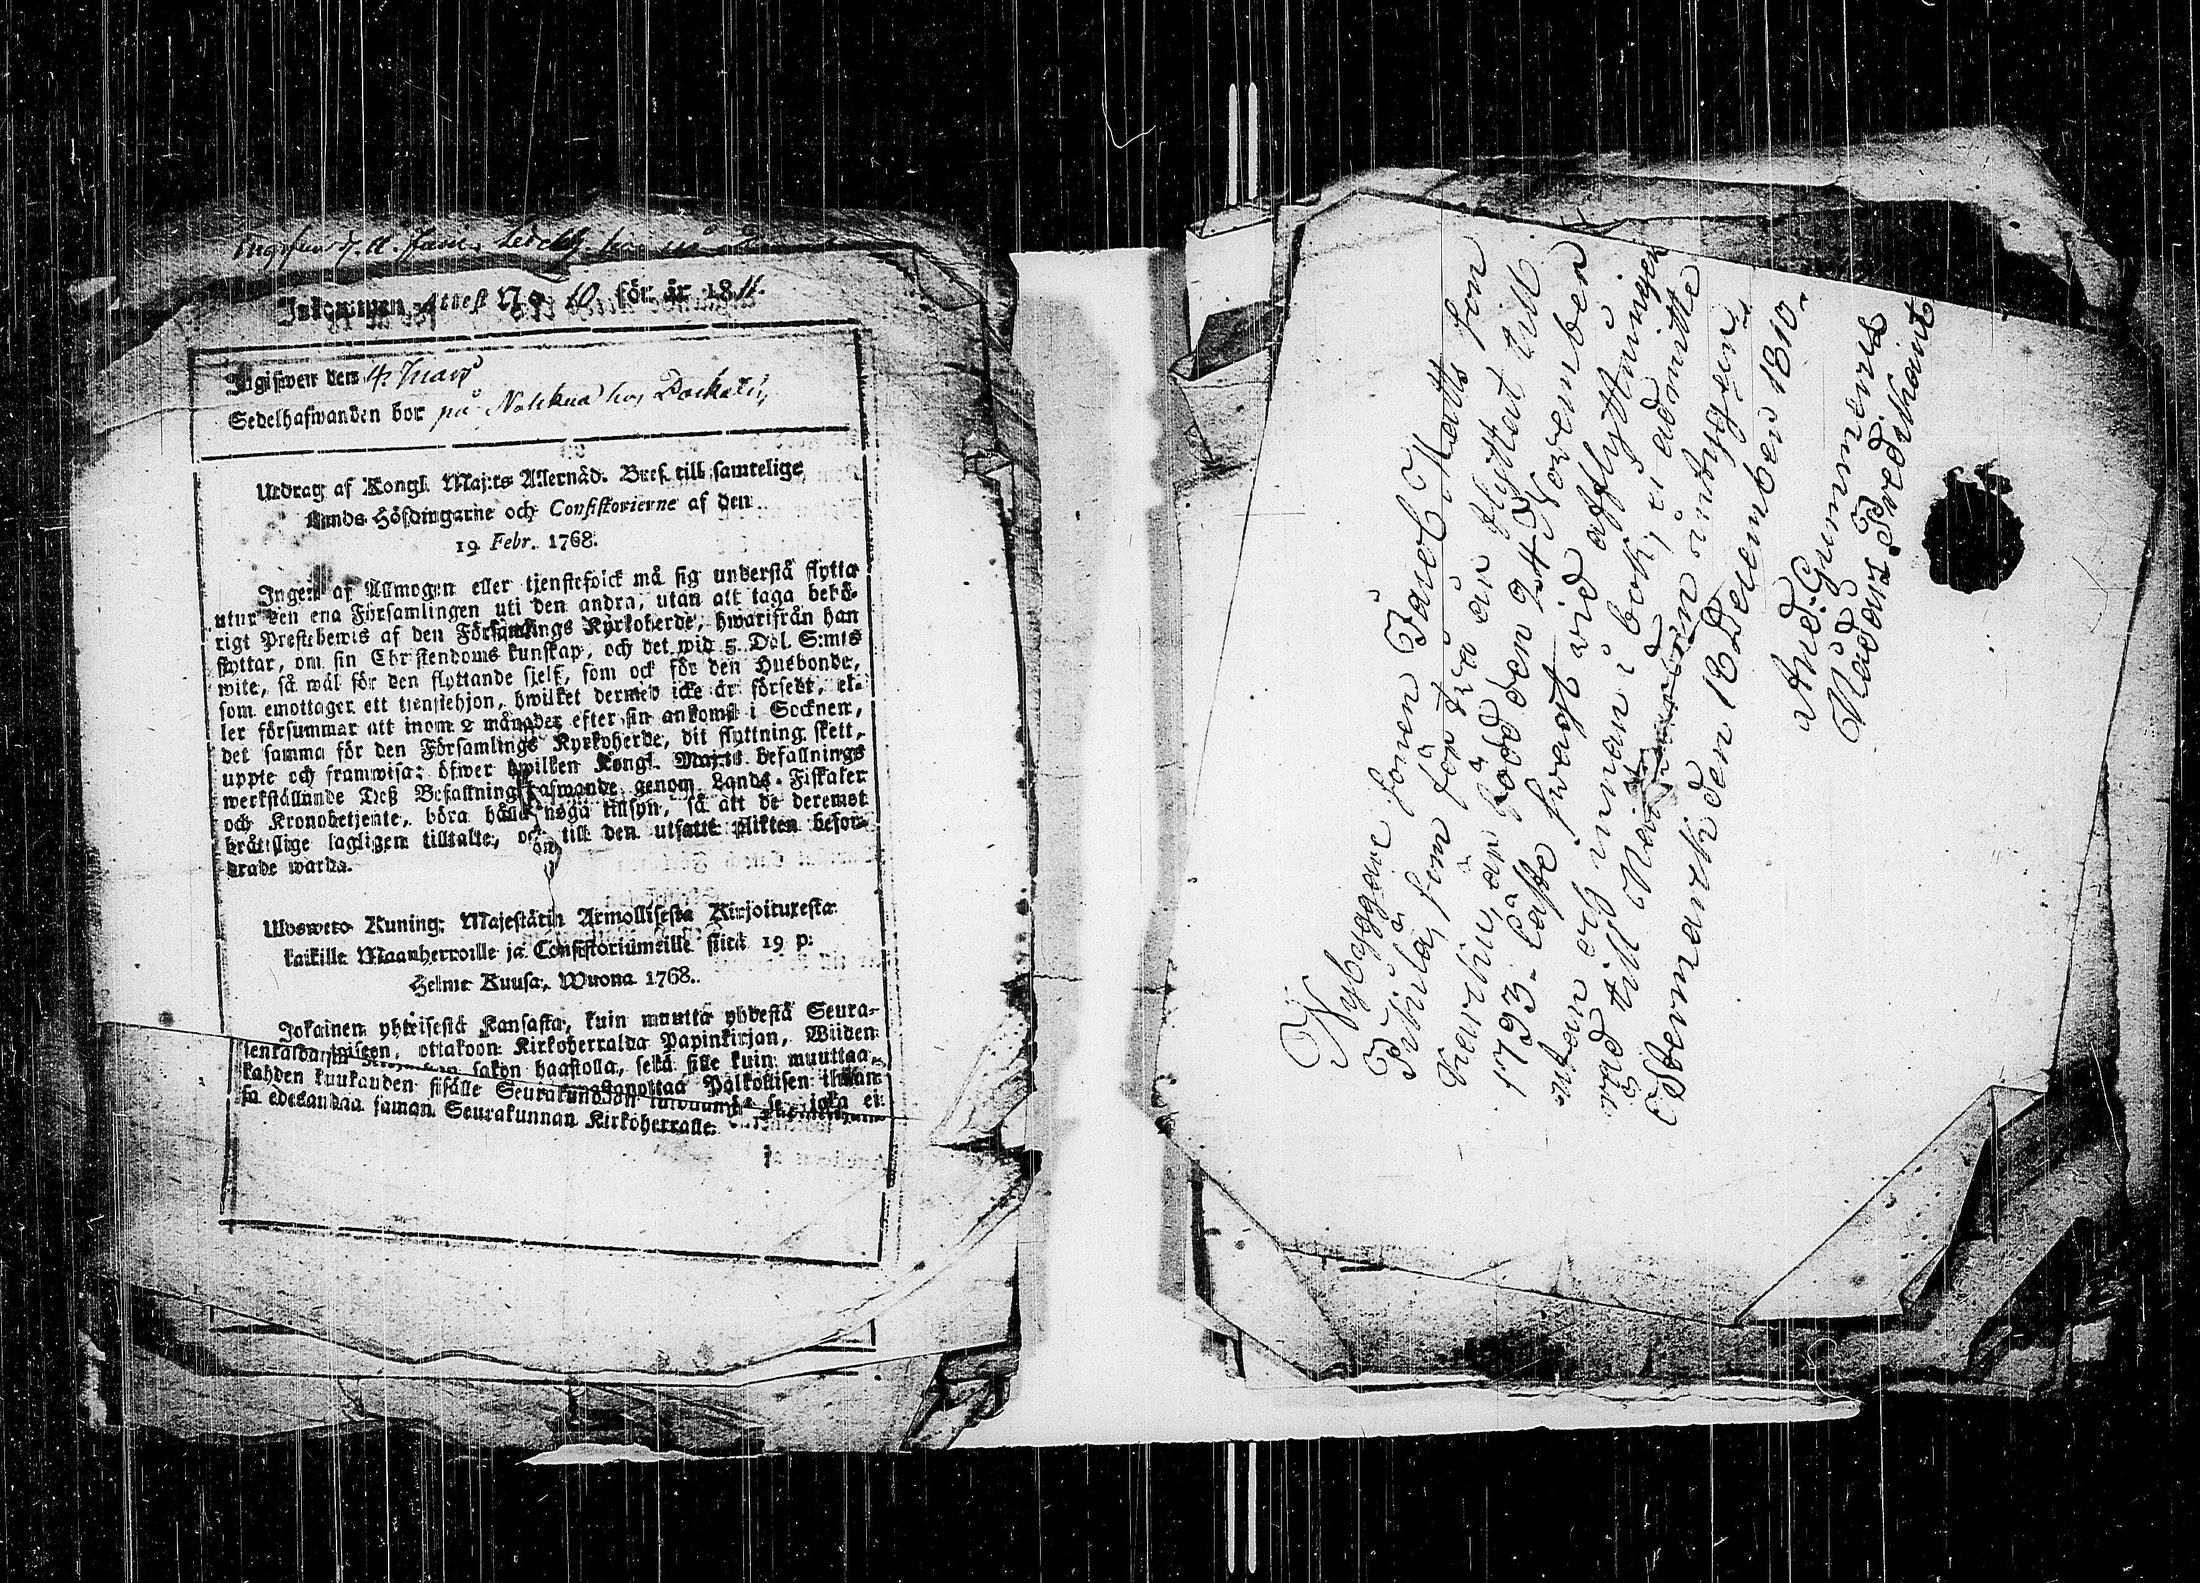 Inkommen Attest No 10 för år 1811.
Ingifwen den 4 Mars
Sedelhafwanden bor på Nohkua hos
Utdrag af Kongl. Maj:ts Allernåd. Bref till samtelige
Lands Höfdingarne och Consistorierne af den
19 Febr. 1768.
Ingen af Allmogen eller tjenstefolck må sig understå flytta
utur den ena Församlingen uti den andra, utan att taga behö-
rigt Prestebewis af den Församlings Kyrkoherde, hwarifrån han
flyttar, om sin Christendoms kunskap, och det wid 5 Dal. S:mts
wite, så wäl för den flyttande sjelf, som ock för den Husbonde,
som emottager ett tjenstehjon, hwilket dermed icke är försedt, el-
ler försummar att inom 2 månader efter sin ankomst i Socknen,
det samma för den Församlings Kyrkoherde, dit flyttning skett,
uppte och framwisa; öfwer hwilken Kongl. Maj:ts befallnings
werkställande Dess Befallningshafwande genom Lands-Fiskaler
och Kronobetjente, böra hålla noga tillsyn, så att de deremot
bråttslige lagligen tilltalte, och till den utsatte plikten befor-
drade warda.
Ulosweto Kuning: Majestätin Armollisesta Kirjoituxesta
kaikille Maanherroille ja Consistoriumeille siitä 19 p:
Helme Kuusa, Wuona 1768.
Jokainen yhteisestä Kansasta, kuin muutta yhdestä Seura-
ottakoon Kirkoherralda Papinkirjan, Wiiden
sakon haastolla, sekä sille kuin muuttaa,
Pälkollisen ilman
kahden kuukauden sisälle se joka ei
sa edesandaa saman Seurakunnan Kirkoherralle.
Nybyggare sonen Jacob Matts son
Pihlä, som för twå år flyttat till
är född den 24 November
1793. läste swagt wid afflyttningen
utan och innan i bok, ei admitte
rad till
Östermark den 12 December 1810.
And: Gummerus
Nådårs Predikant